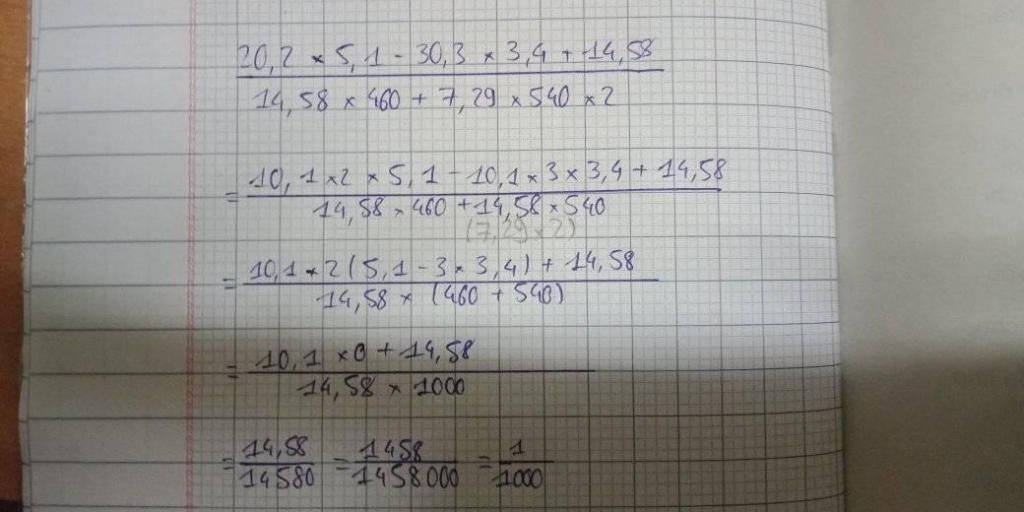 20,2 × 5,1 - 30,3 × 3,4 + 14,58
14,58 × 460 + 7,29 × 540 × 2
= 10,1 × 2 × 5,1 - 10,1 × 3 × 3,4 + 14,58
14,58 × 460 + 14,58 × 540
(7,29 × 2)
= 10,1 × 2 (5,1 - 3 × 3,4) + 14,58
14,58 × (460 + 540)
= 10,1 × 0 + 14,58
14,58 × 1000
= 14,58 = 1458 = 1
14580 1458000 1000